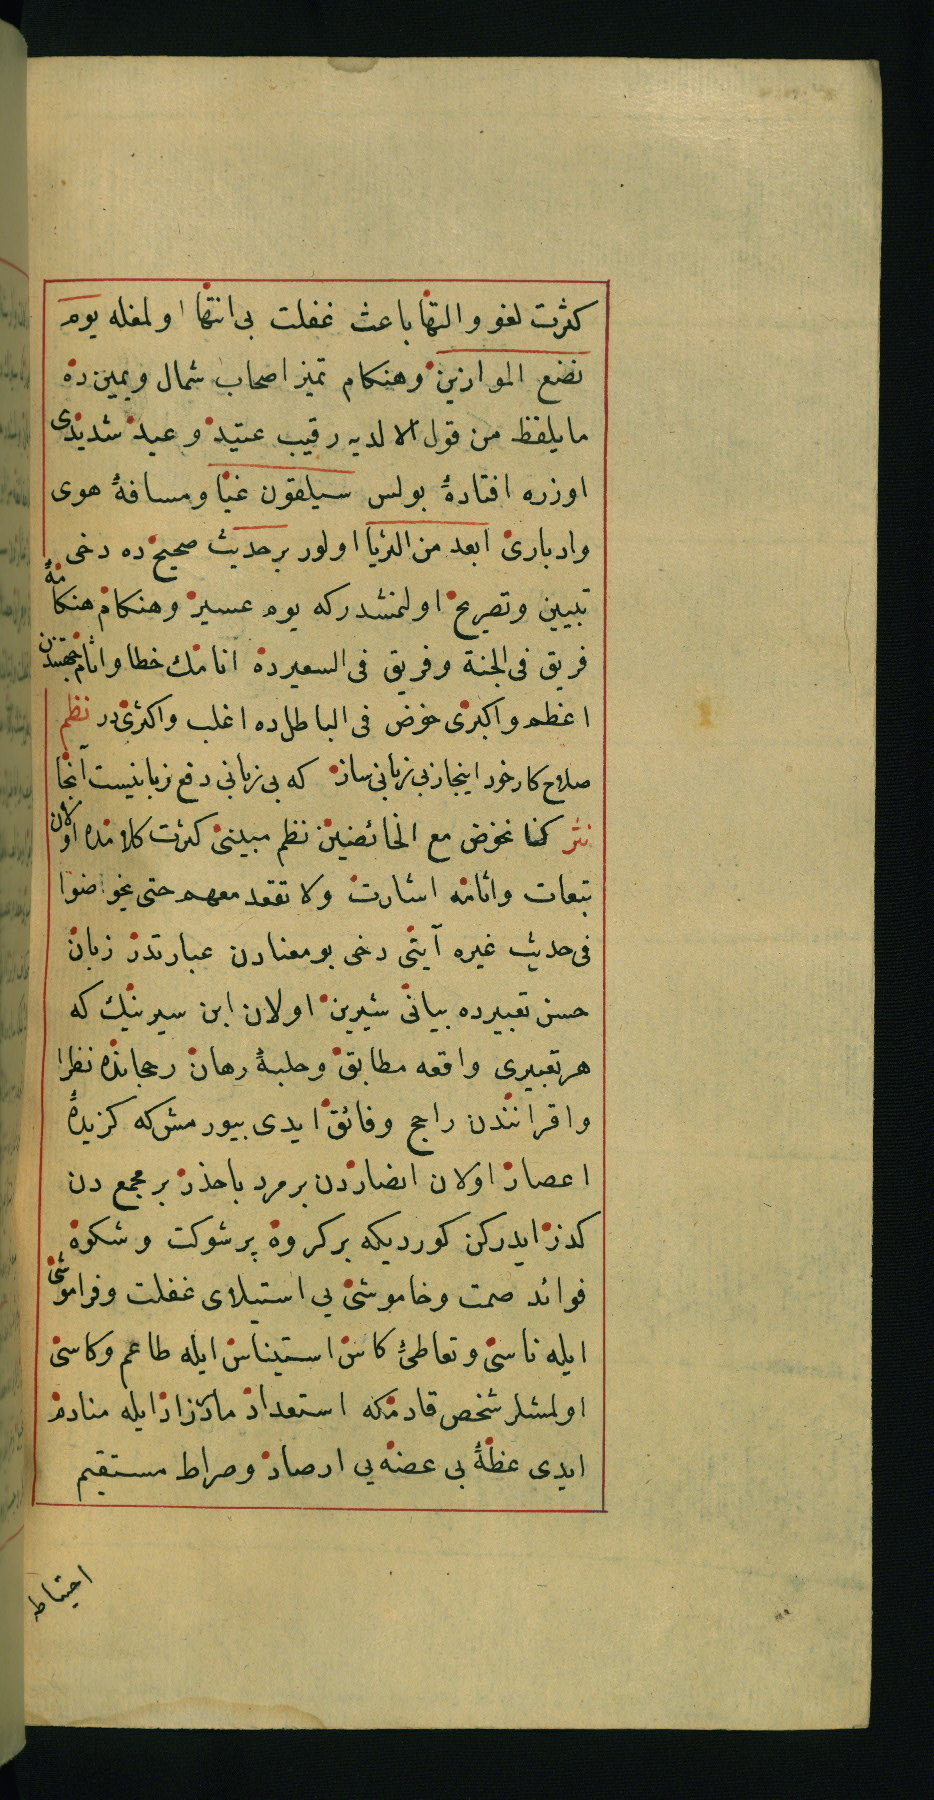 كثرت لغو و التها باعث غفلت بی انتها اولمغله يوم
نضع الموازين وهنكام تميز اصحاب شمال ويمين ده
ما يلفظ من قول الا لديه رقيب عتيد وعيد شديدی
اوزره افتادهٔ بولس سيلقون غيا ومسافهٔ هوی
وادباری ابعد من الثريا اولور بر حديث صحيح ده دخی
تبيين وتصريح اولنمشدر كه يوم عسير وهنكام هنكامهٔ
فريق فی الجنة وفريق فی السعيرده انامك خطا واثام جهتندن
اعظم واكبری خوض فی الباطل ده اغلب واكثری در نظم
صلاح كار خود اينجا ز بی زبانی ساز كه بی زبانی دفع زبانيست آنجا
نثر كنا نخوض مع الخائضين نظم مبينی كثرت كلامده اولان
تبعات واثامه اشارت ولا تقعد معهم حتی يخوضوا
فی حديث غيره آيتی دخی بو معنادن عبارتدر زبان
حسن تعبيرده بيانی شيرين اولان ابن سيرينك كه
هر تعبيری واقعه مطابق وحلبهٔ رهان رجحانده نظرا
واقرانندن راجح وفائق ايدی بيورمش كه كزيدهٔ
اعصار اولان انصاردن بر مرد با حذر بر مجمع دن
كذر ايدركن كورديكه بر كروه پر شوكت وشكوه
فوائد صمت وخاموشی يی استيلای غفلت وفراموشی
ايله ناسی وتعاطیٔ كاس استيناس ايله طاعم وكاسی
اولمشلر شخص قادم كه استعداد مادرزاد ايله منادم
ايدی عظهٔ بی عضه يی ارصاد وصراط مستقيم
احتياطه